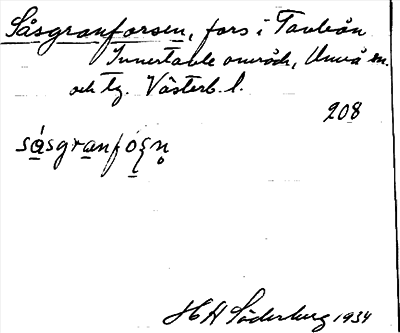 Såsgranforsen, fors i Tavleån
Innertavle område, Umeå sn.
och tg. Västerb. l.
208
såsgranfo
H H Söderberg 1934